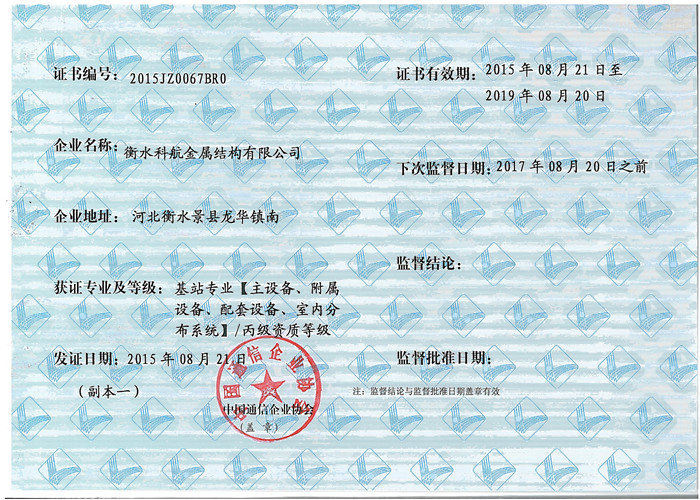 证书编号: 2015JZ0067BR0
企业名称: 衡水科航金属结构有限公司
企业地址: 河北衡水景县龙华镇南
获证专业及等级: 基站专业【主设备、附属
设备、配套设备、室内分
布系统】/丙级资质等级
发证日期: 2015 年 08 月 21 日
(副本一)
中国通信企业协会
中国通信企业协会
(盖 章)
证书有效期: 2015 年 08 月 21 日至
2019 年 08 月 20 日
下次监督日期: 2017 年 08 月 20 日之前
监督结论:
监督批准日期:
注: 监督结论与监督批准日期盖章有效